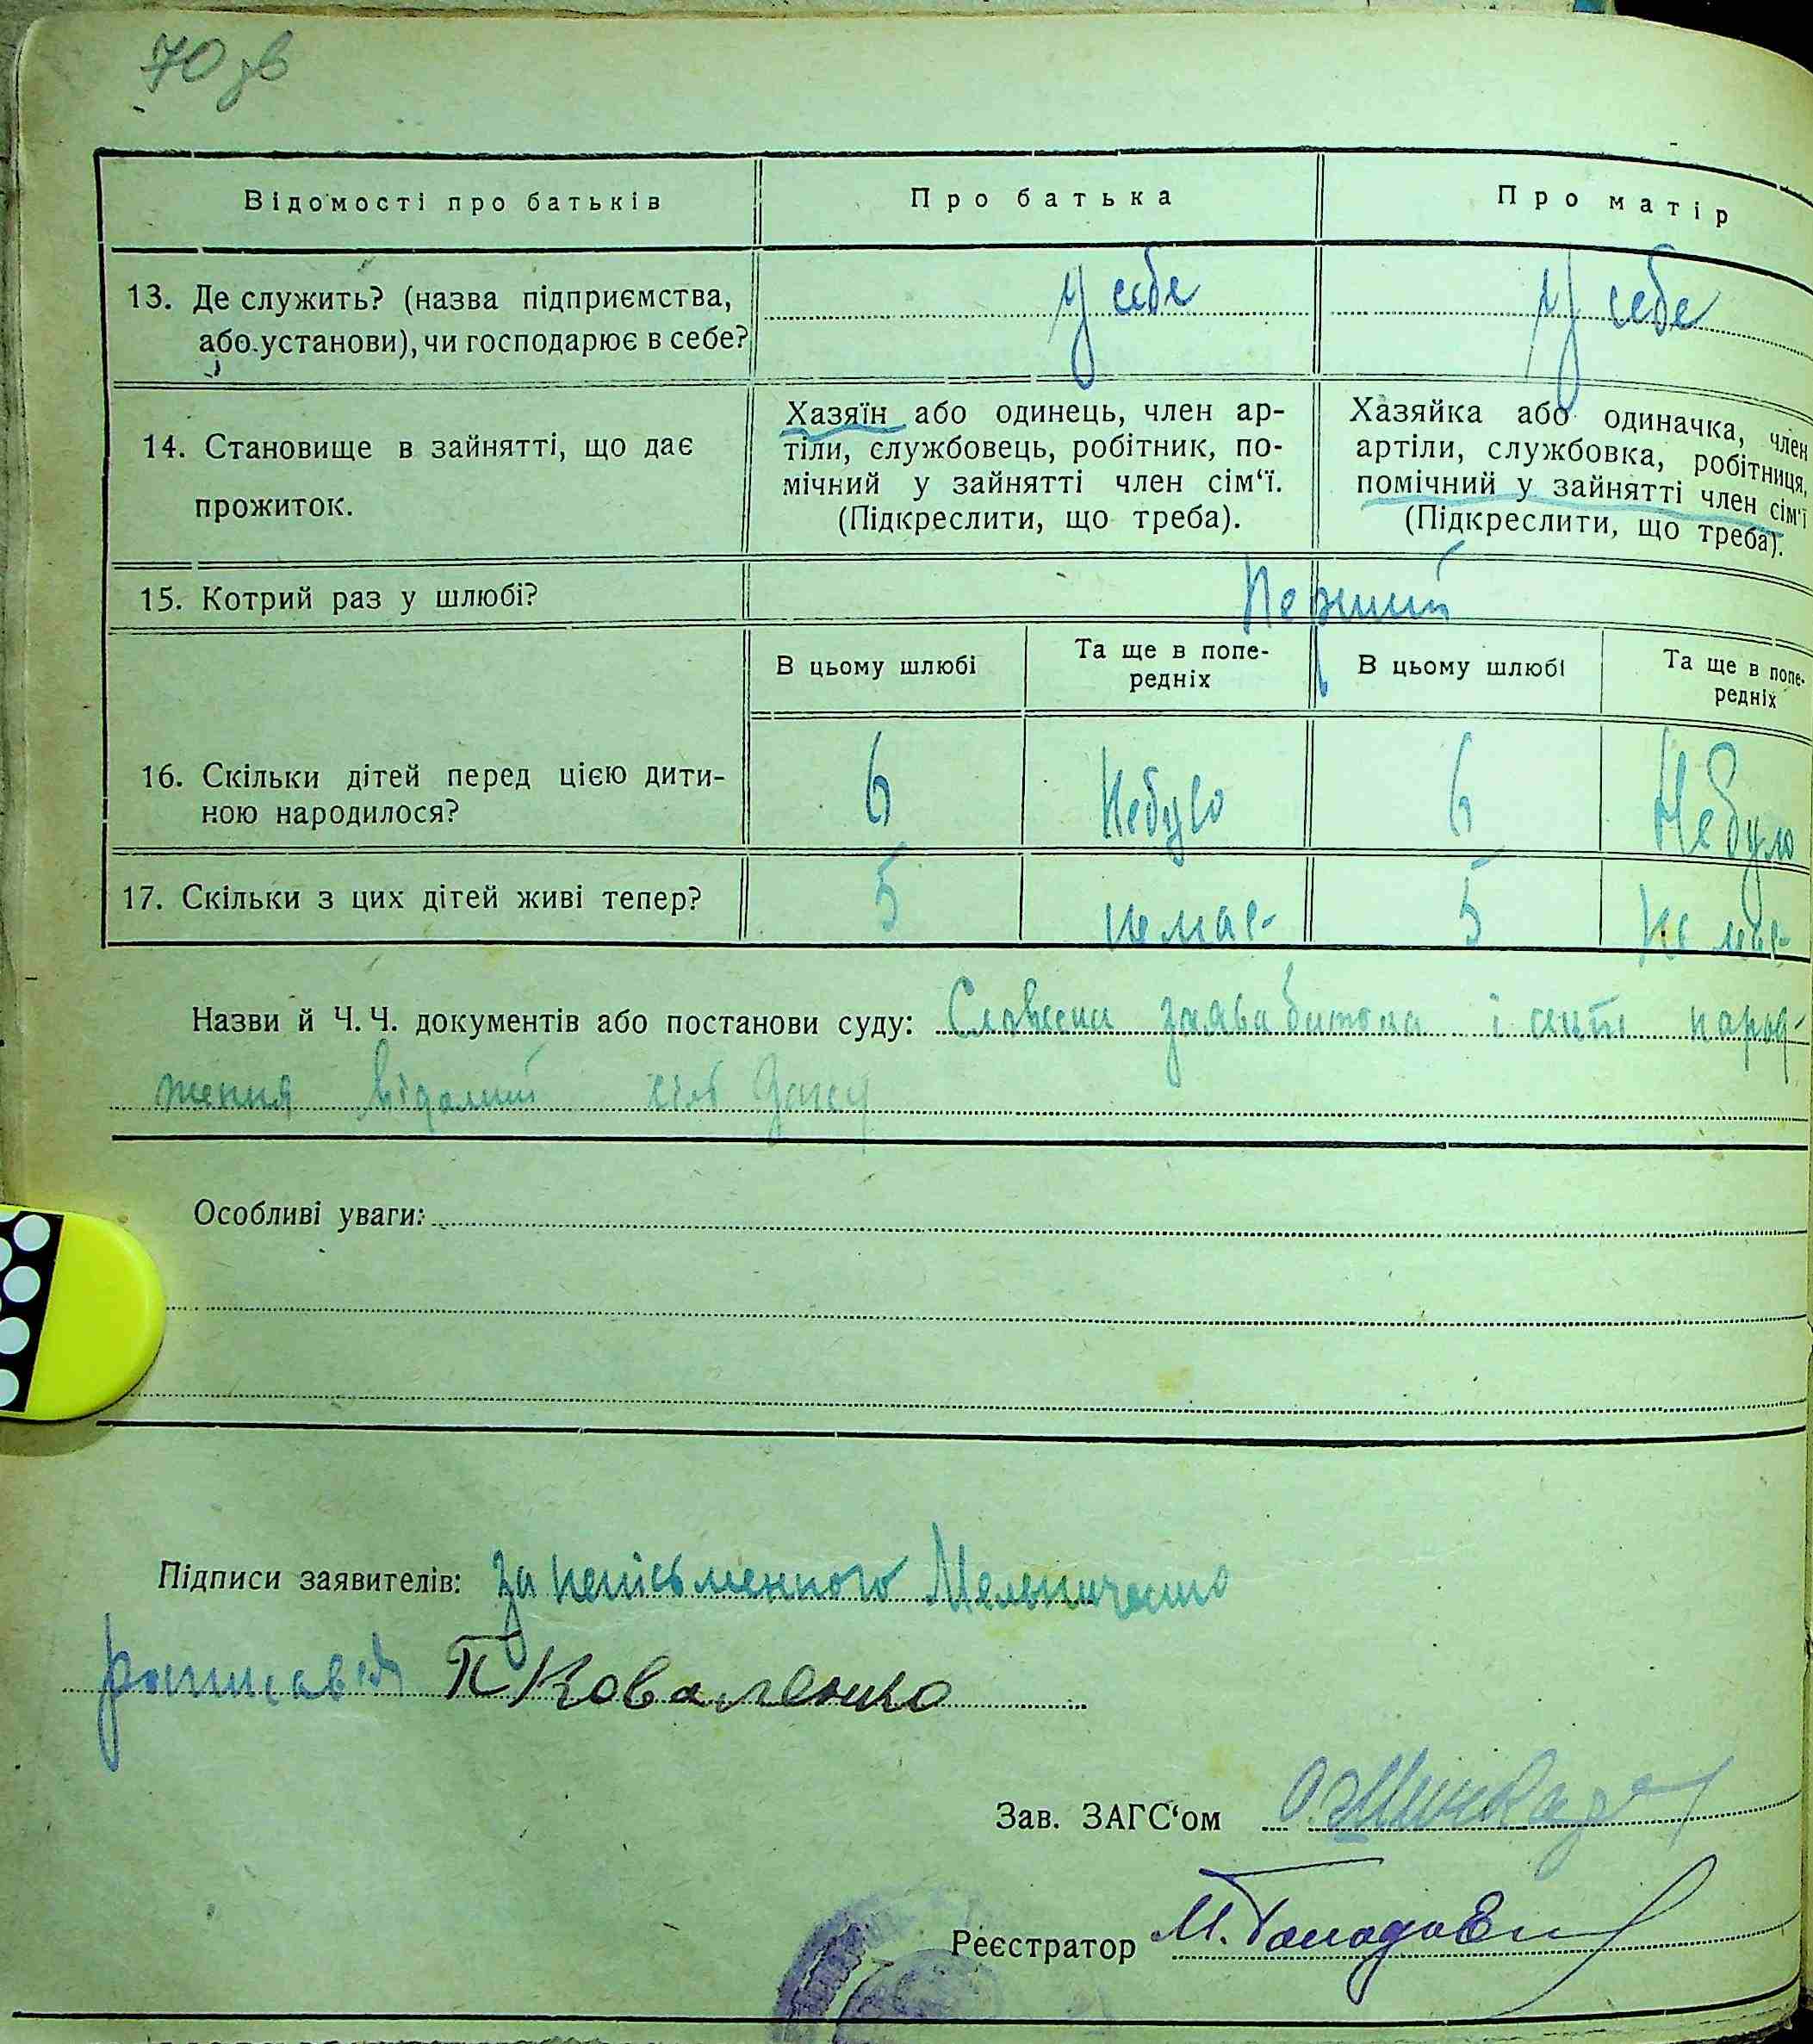 70 зв
Відомості про батьків
Про батька
Про матір
13. Де служить? (назва підприємства,
або установи), чи господарює в себе?
у себе
у себе
14. Становище в зайнятті, що дає
прожиток.
Хазяїн або одинець, член ар-
тіли, службовець, робітник, по-
мічний у зайнятті член сім‘ї.
(Підкреслити, що треба).
Хазяйка або одиначка, член
артіли, службовка, робітниця,
помічний у зайнятті член сім‘ї
(Підкреслити, що треба).
15. Котрий раз у шлюбі?
Перший
В цьому шлюбі
Та ще в попе-
редніх
В цьому шлюбі
Та ще в попе-
редніх
16. Скільки дітей перед цією дити-
ною народилося?
6
Небуло
6
Небуло
17. Скільки з цих дітей живі тепер?
5
немає
5
немає
Назви й Ч. Ч. документів або постанови суду: Словесна заява батька і народ-
ження
Особливі уваги:
Підписи заявителів: За неписьменного Мельниченко
росписався П Коваленко
Зав. ЗАГС‘ом
Реєстратор М.